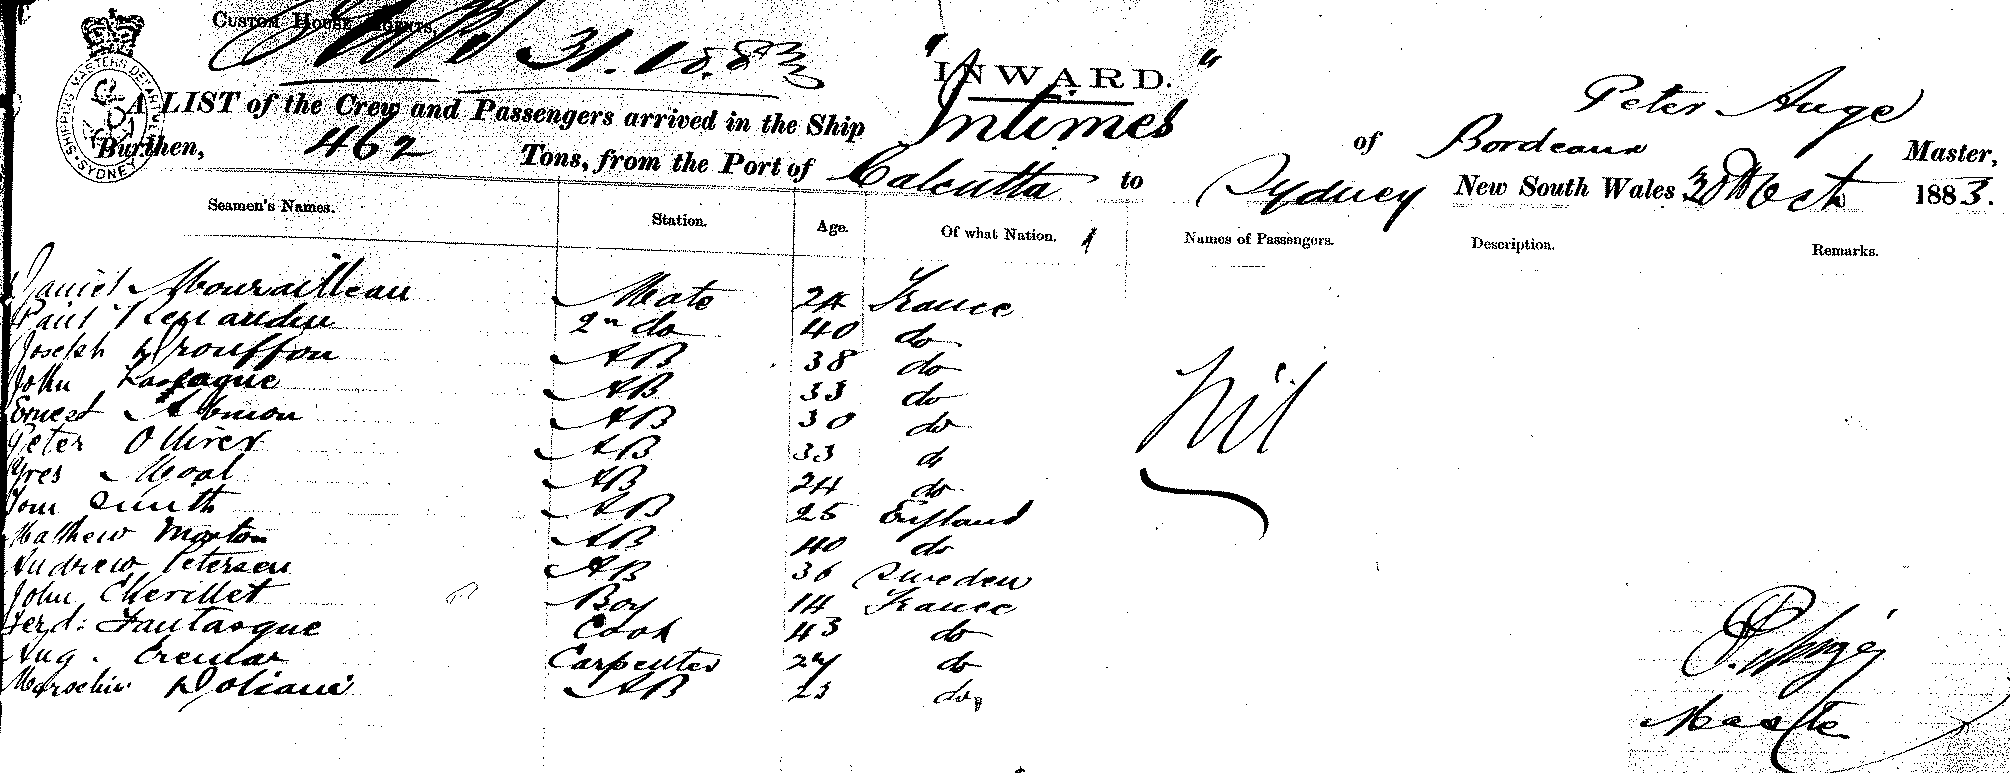 CUSTOM HOUSE
31.10.83
"INWARD."
A LIST of the Crew and Passengers arrived in the Ship Intimes of Bordeaux Peter Auge Master,
Burthen, 462 Tons, from the Port of Calcutta to Sydney New South Wales 30th Oct 1883.
SHIPPING MASTERS DEPARTMENT SYDNEY
Seamen's Names. Station. Age. Of what Nation. Names of Passengers. Description. Remarks.
Daniel Mate 24 France
Paul 2n do 40 do
Joseph AB 38 do
John AB 33 do
Ernest AB 30 do
Peter Olliver AB 33 do
Yves Moal AB 24 do
Tom Smith AB 25 England
Mathew Morton AB 40 do
Andrew Petersen AB 36 Sweden
John Cherillet Boy 14 France
Ferd: Fantasque Cook 43 do
Aug. Carpenter 27 do
AB 23 do
Nil
P. Auge
Master